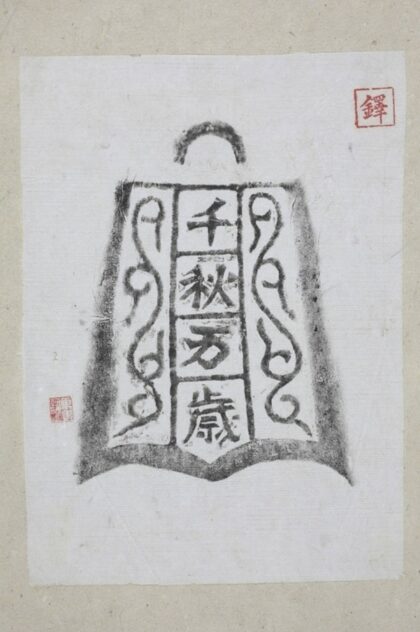 鐸
千
秋
万
歳